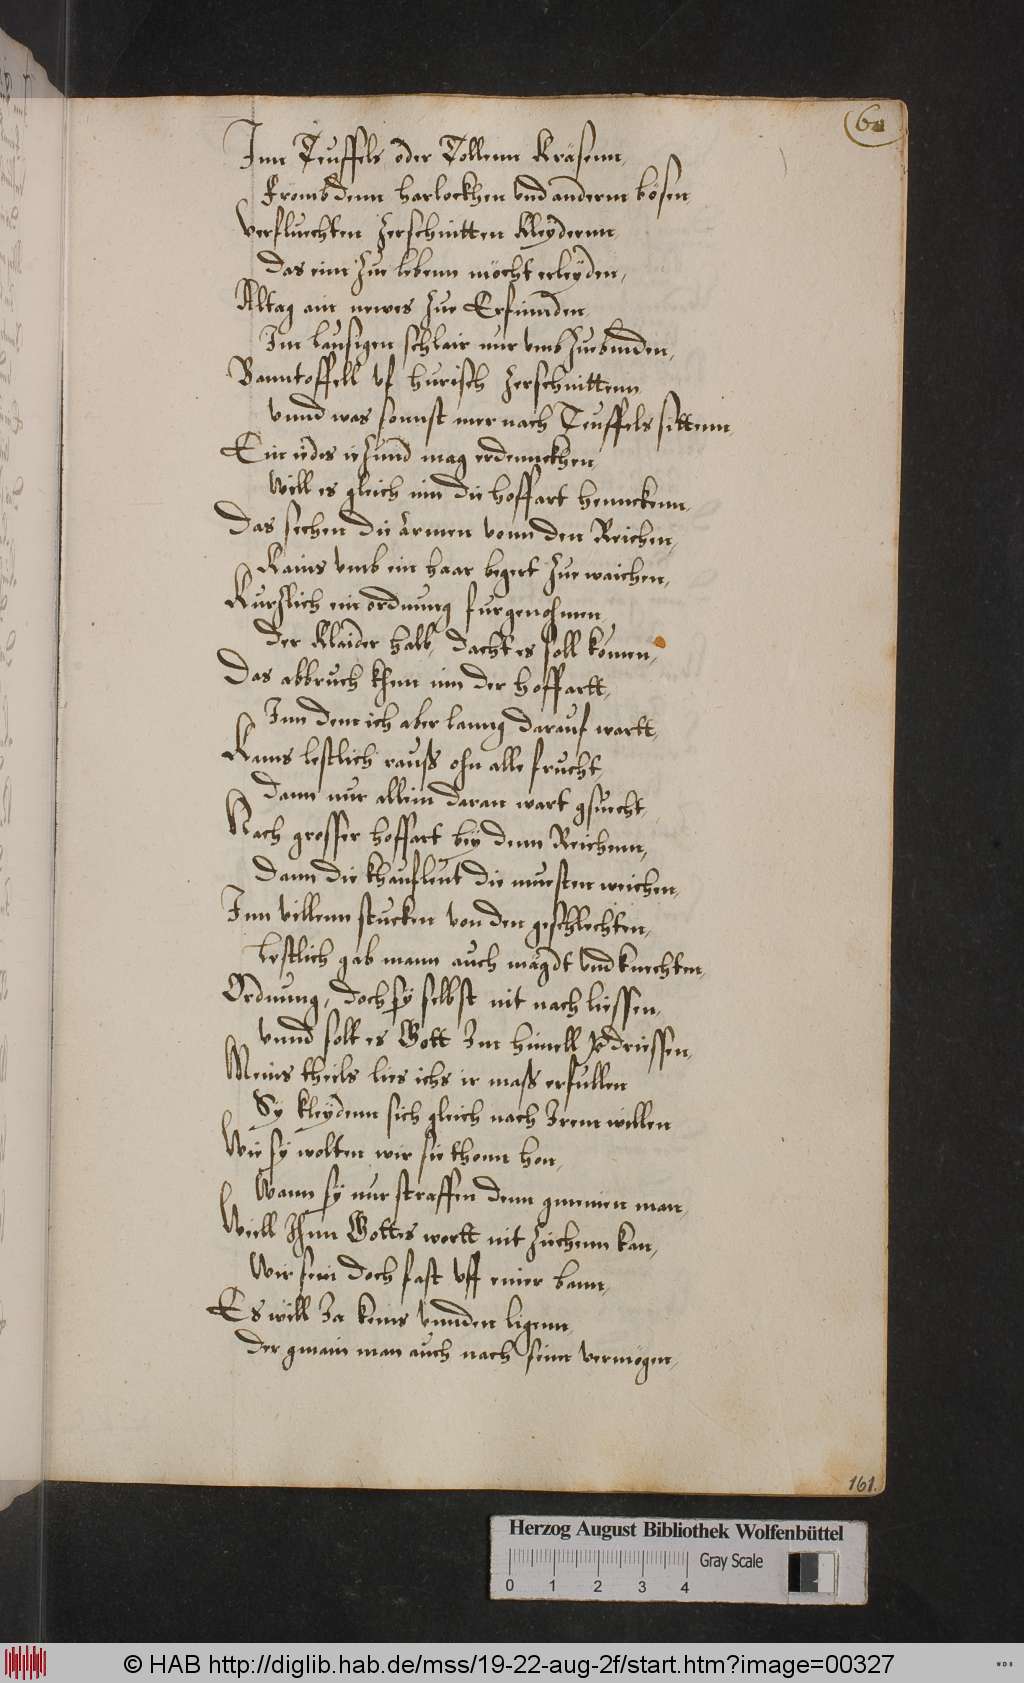 60
Inn Teuffels oder Tollenn Kräsenn,
Frombdenn harlockhen vnd anderm bösen
verfluechten Zerschnitten Kleydernn,
das eim Zue lebenn möcht erleyden,
Altag ain newes Zue Erfinnden
Im lausigen schlair nur vmb Zuebinden,
Banntoffell vf hurisch Zerschnittenn
vnnd was sonnst mer nach Teuffels sittenn,
Ein iedes ieZund mag erdennckhen
will es gleich inn die hoffart henncken,
Das sechen die Armen vonn den Reichen,
Kains vmb ein haar begert Zue waichen,
KurZlich ein ordnung furgenohmen
der Klaider halb, dacht es soll komen,
Das abbruch khem inn der hoffartt,
Inn dem ich aber lanng darauf wartt,
Kams lestlich rauß ohn alle frucht,
dann nur allein daran wart gsuecht,
Nach grosser hoffart bey denn Reichenn,
dann die khaufleut die muesten weichen,
Inn villenn stucken von den geschlechten,
lestlich gab mann auch mägdt vnd knechten,
Ordnung, doch sy selbst nit nach liessen,
vnnd solt es Gott Im himell verdriessen,
Meins theils lies ichs ir maß erfullen
Sy kleydenn sich gleich nach Irem willen
Wie sy wolten wir sie thonn hon,
Wann sy nur straffen denn gmeinen man,
Weill Ihnn Gottes wortt nit Ziehenn kan,
Wir sein doch fast vff einer bann,
Es will Ja keins vnnden ligenn
der gmain man auch nach seim vermögen,
161.
Herzog August Bibliothek Wolfenbüttel
Gray Scale
0 1 2 3 4
© HAB http://diglib.hab.de/mss/19-22-aug-2f/start.htm?image=00327